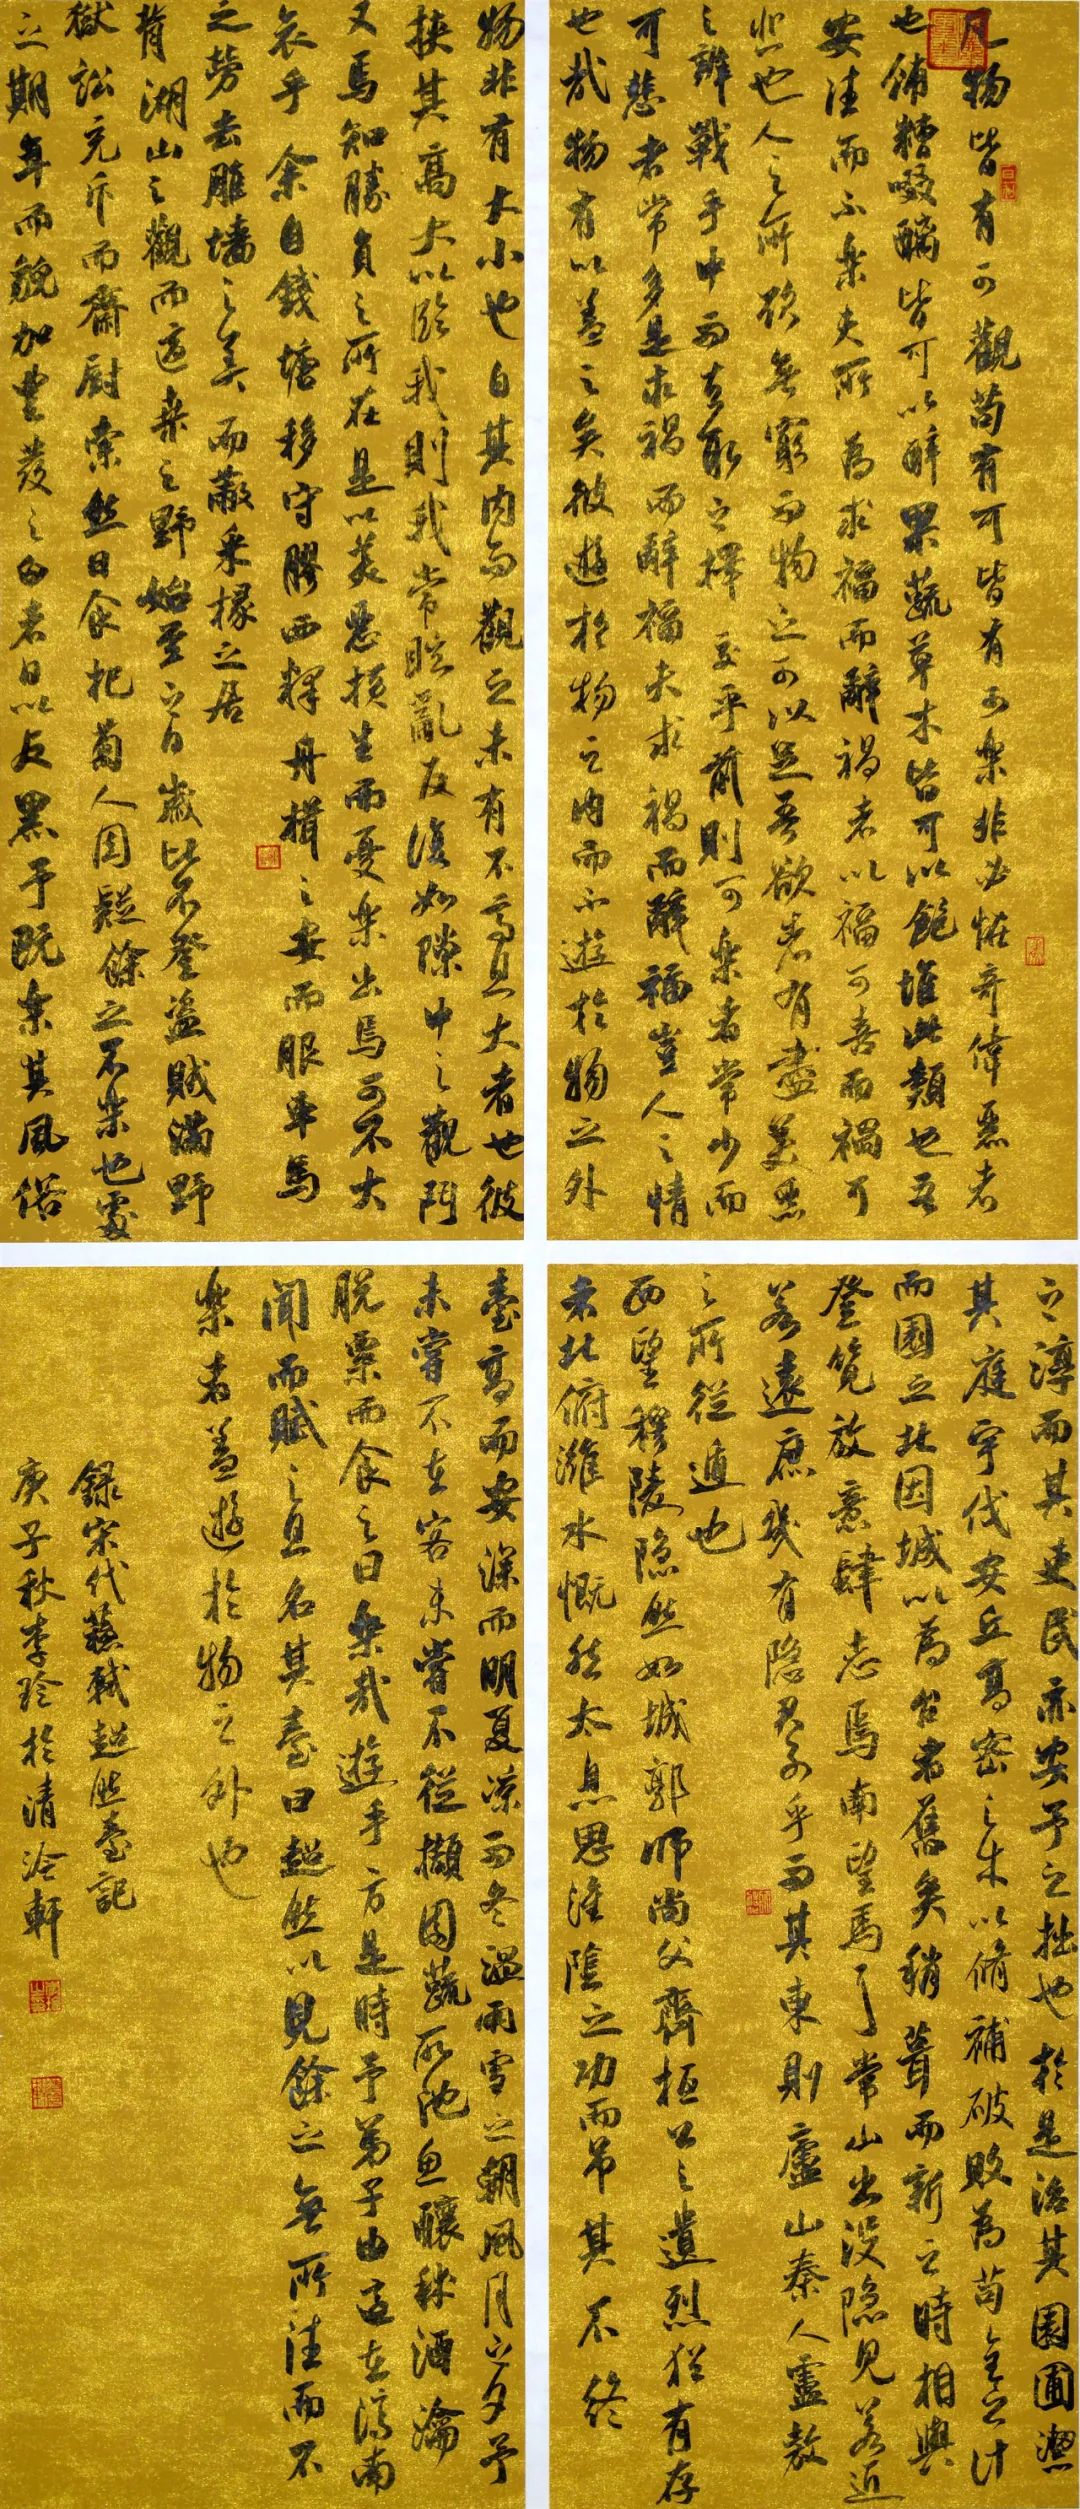 凡物皆有可觀苟有可皆有可樂非必怪奇偉惡者
也餔糟啜醨皆可以醉果蔬草木皆可以飽推此類也吾
安往而不樂夫所為求福而辭禍者以福可喜而禍可
悲也人之所欲無窮而物之可以足吾欲者有盡美惡
之辨戰乎中而去取之擇交乎前則可樂者常少而
可悲者常多是求禍而辭福夫求禍而辭福豈人之情
也哉物有以蓋之矣彼遊於物之內而不遊於物之外
物非有大小也自其內而觀之未有不高且大者也彼
挾其高大以臨我則我常眩亂反復如隙中之觀鬥
又焉知勝負之所在是以美惡橫生而憂樂出焉可不大
哀乎余自錢塘移守膠西釋舟楫之安而服車馬
之勞去雕墻之美而蔽采椽之居
背湖山之觀而適桑之野始至之日歲比不登盜賊滿野
獄訟充斥而齋廚索然日食杞菊人固疑餘之不樂也處
之期年而貌加豐髮之白者日以反黑予既樂其風俗
之淳而其吏民亦安予之拙也於是治其園圃潔
其庭宇伐安丘高密之木以脩補破敗為苟全之計
而園之北因城以為台者舊矣稍葺而新之時相與
登覽放意肆志焉南望馬了常山出沒隱見若近
若遠庶幾有隱君子乎而其東則廬山秦人盧敖
之所從遁也
西望穆陵隱然如城郭師尚父齊桓公之遺烈猶有存
者北俯濰水慨然太息思淮陰之功而吊其不終
臺高而安深而明夏涼而冬溫雨雪之朝風月之夕予
未嘗不在客未嘗不從擷園蔬取池魚釀秫酒瀹
脫粟而食之曰樂哉遊乎方是時予弟子由適在濟南
聞而賦之且名其臺曰超然以見餘之無所往而不
樂者蓋遊於物之外也
錄宋代蘇軾超然臺記
庚子秋李玲於清泠軒